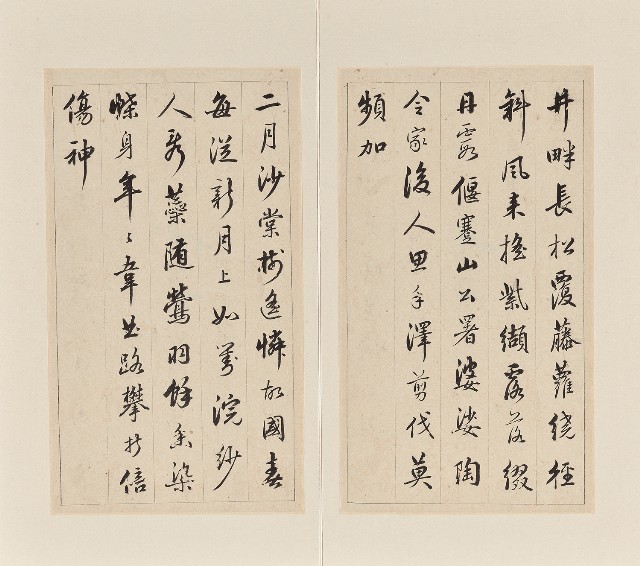 井畔長松覆藤蘿繞徑
斜風來搖紫纈露落綴
丹霞偃蹇山公署婆娑陶
令家後人思手澤剪伐莫
頻加
二月沙棠樹遙憐故國春
每從新月上如對浣紗
人蘂隨鶯羽餘香染
蝶身年〻韋曲路攀折信
傷神